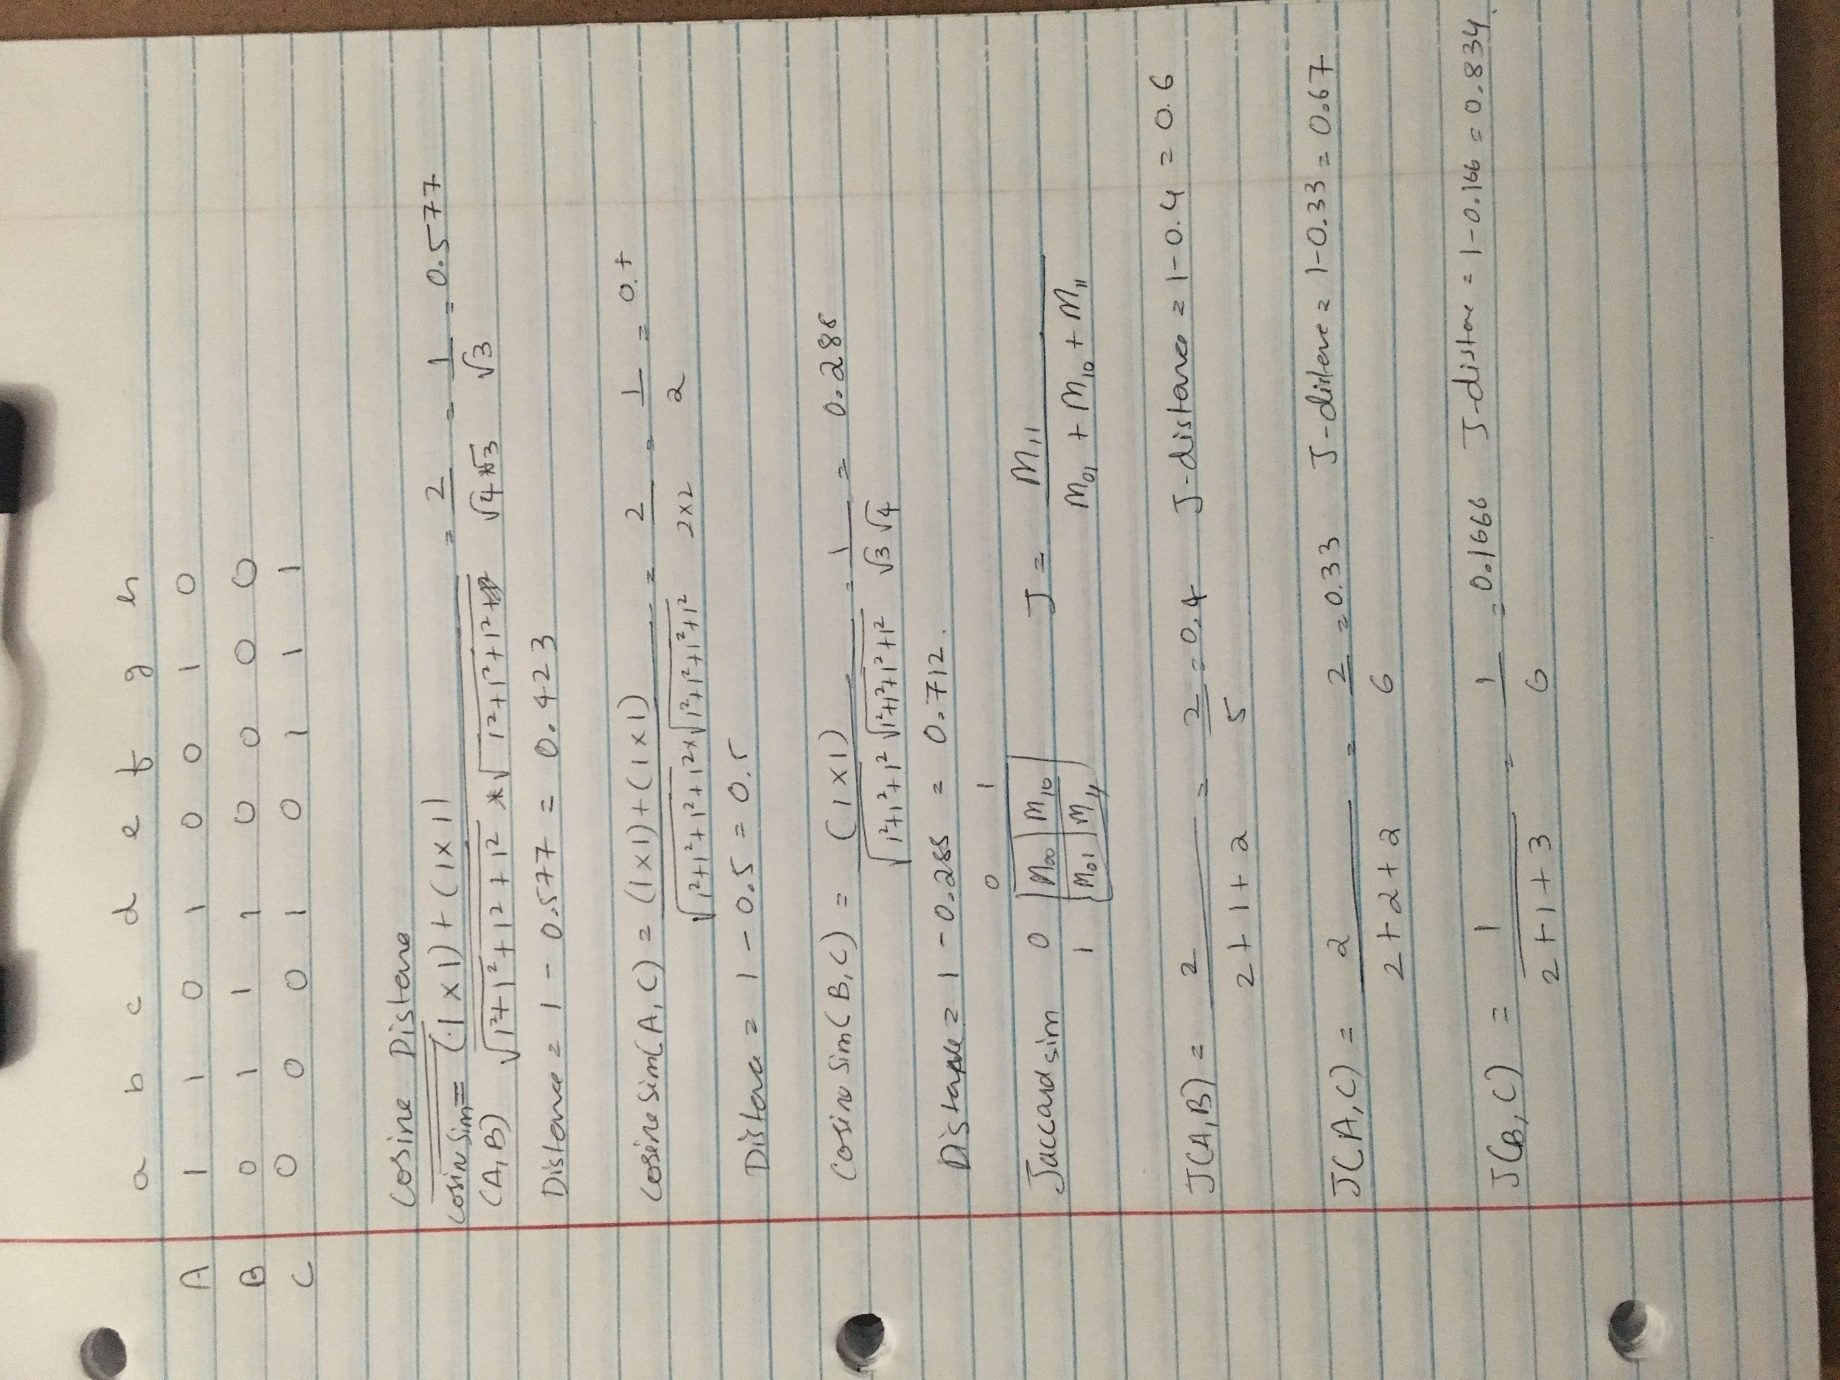 a b c d e f g h
A 1 1 0 1 0 0 1 0
B 0 1 1 1 0 0 0 0
C 0 0 0 1 0 1 1 1
Cosine Distane
Cosin Sim = (1×1)+(1×1) = 2 = 1 = 0.577
(A,B) √1²+1²+1²+1² * √1²+1²+1² √4 √3 √3
Distance = 1 - 0.577 = 0.423
Cosine Sim(A,C) = (1×1)+(1×1) = 2 = 1 = 0.5
√1²+1²+1²+1² × √1²+1²+1²+1² 2×2 2
Distance = 1 - 0.5 = 0.5
Cosine Sim(B,C) = (1×1) = 1 = 0.288
√1²+1²+1² √1²+1²+1²+1² √3 √4
Distance = 1 - 0.288 = 0.712.
0 1
Jaccard sim 0 M00 M10 J = M11
1 M01 M11 M01 + M10 + M11
J(A,B) = 2 = 2 = 0.4 J-distance = 1-0.4 = 0.6
2+1+2 5
J(A,C) = 2 = 2 = 0.33 J-distance = 1-0.33 = 0.67
2+2+2 6
J(B,C) = 1 = 1 = 0.1666 J-distane = 1-0.166 = 0.834
2+1+3 6